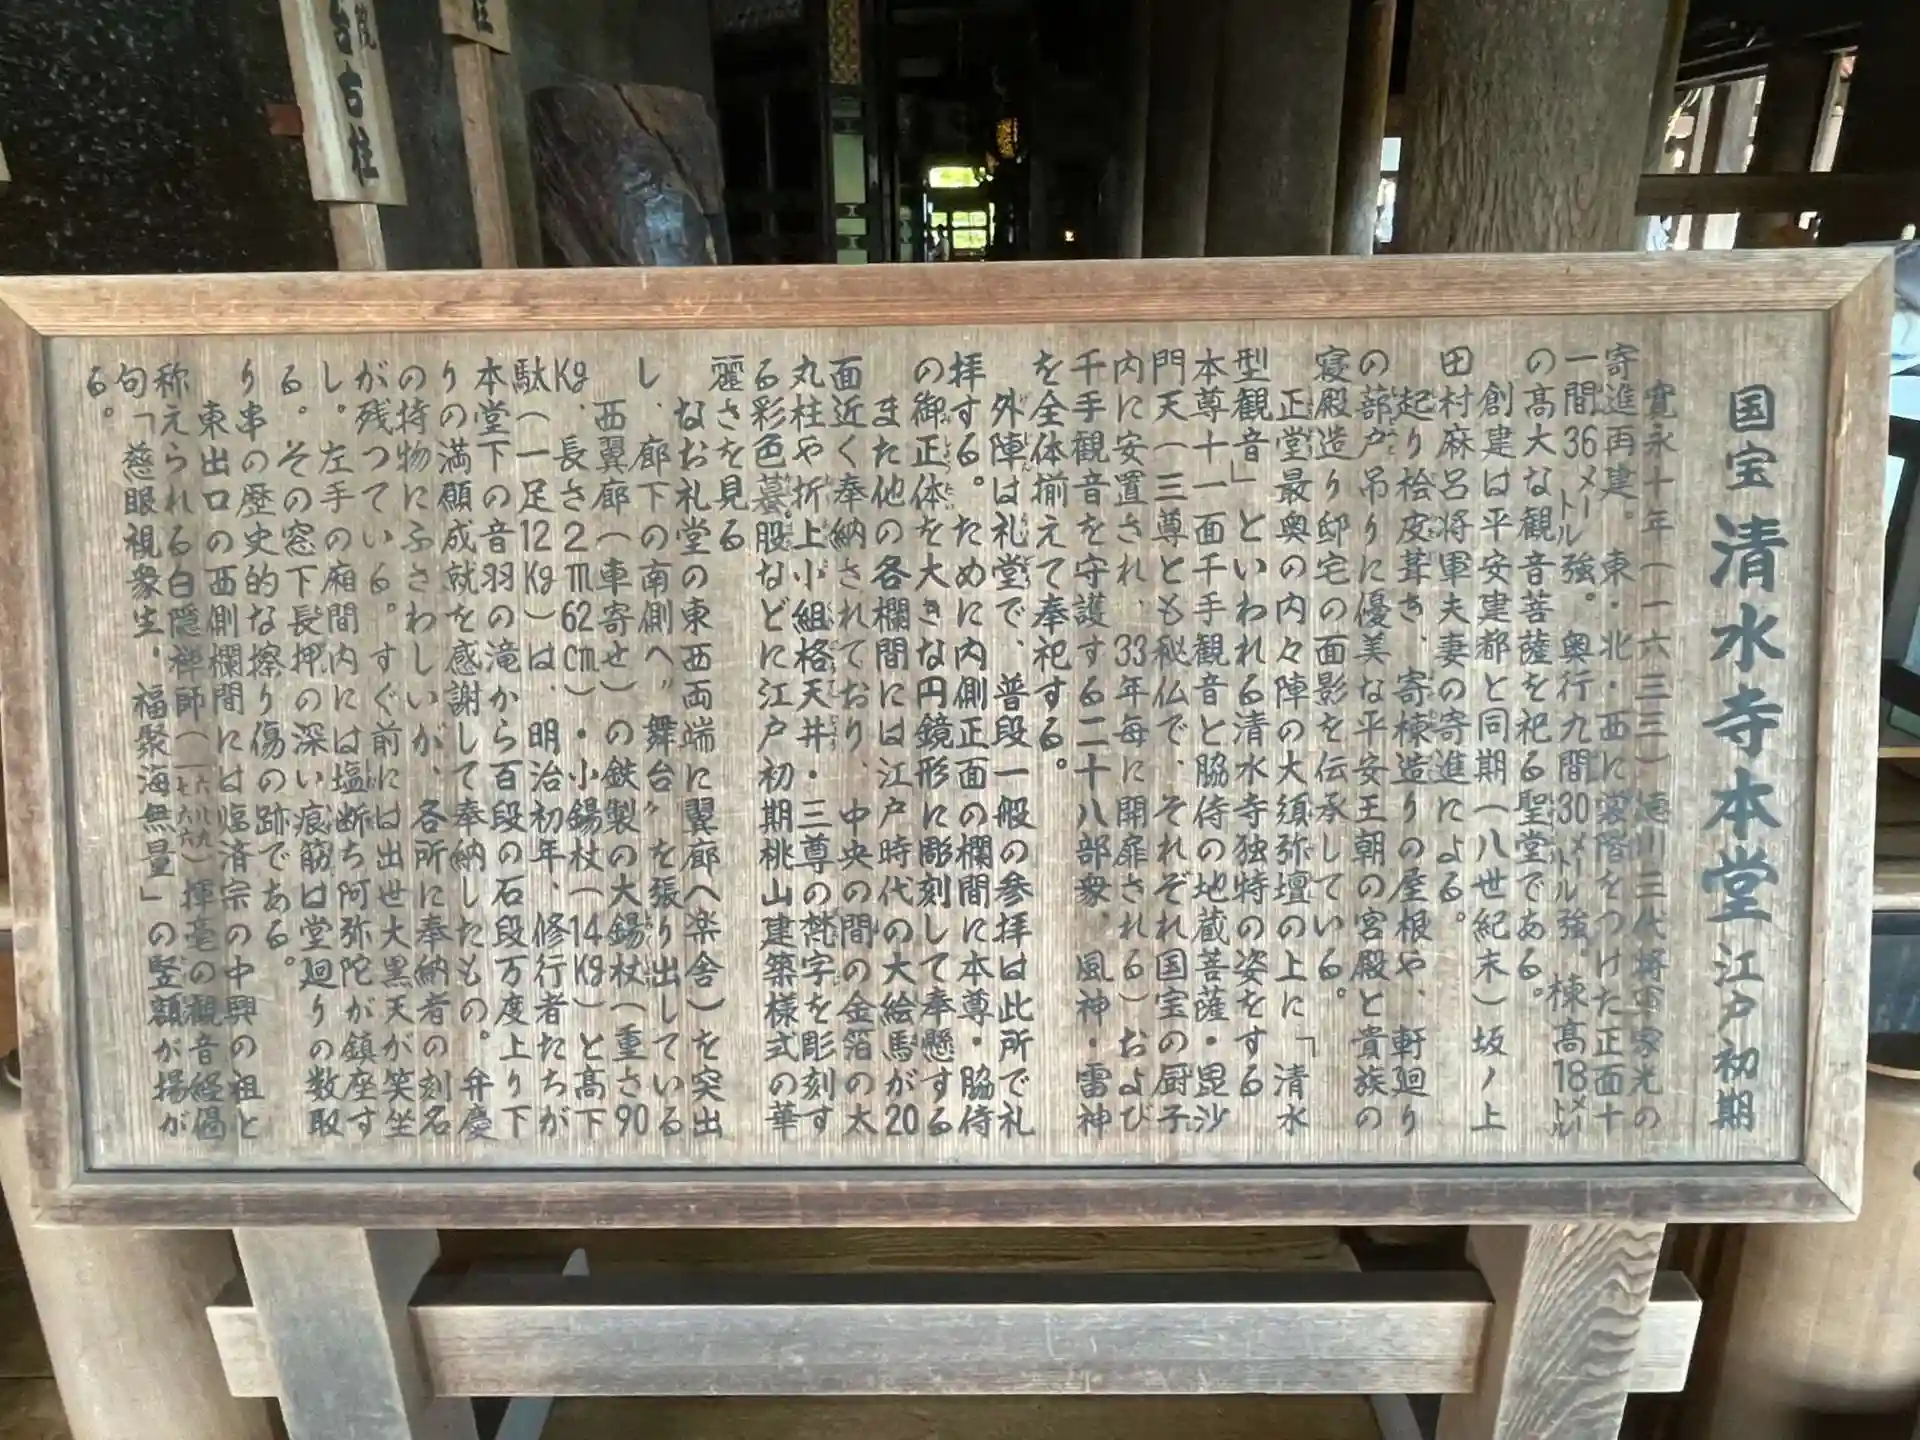 国宝 清水寺本堂 江戸初期
寛永十年(一六三三)徳川三代将軍家光の
寄進再建。東・北・西に裳階をつけた正面十
一間36メートル強。奥行九間30メートル強。棟髙18メートル
の髙大な観音菩薩を祀る聖堂である。
創建は平安建都と同期(八世紀末)坂ノ上
田村麻呂将軍夫妻の寄進による。
起り桧皮葺き、寄棟造りの屋根や、軒廻り
の蔀戸吊りに優美な平安王朝の宮殿と貴族の
寝殿造り邸宅の面影を伝承している。
正堂最奥の内々陣の大須弥壇の上に「清水
型観音」といわれる清水寺独特の姿をする
本尊十一面千手観音と脇侍の地蔵菩薩・毘沙
門天(三尊とも秘仏で、それぞれ国宝の厨子
内に安置され、33年毎に開扉される)および
千手観音を守護する二十八部衆。風神・雷神
を全体揃えて奉祀する。
外陣は礼堂で、普段一般の参拝は此所で礼
拝する。ために内側正面の欄間に本尊・脇侍
の御正体を大きな円鏡形に彫刻して奉懸する
また他の各欄間には江戸時代の大絵馬が20
面近く奉納されており、中央の間の金箔の太
丸柱や折上小組格天井・三尊の梵字を彫刻す
る彩色蟇股などに江戸初期桃山建築様式の華
麗さを見る
なお礼堂の東西両端に翼廊(楽舎)を突出
し、廊下の南側へ〝舞台〟を張り出している
西翼廊(車寄せ)の鉄製の大錫杖(重さ90
Kg、長さ2m62cm)・小錫杖(14Kg)と髙下
駄(一足12Kg)は、明治初年、修行者たちが
本堂下の音羽の滝から百段の石段万度上り下
りの満願成就を感謝して奉納したもの。弁慶
の持物にふさわしいが、各所に奉納者の刻名
が残つている。すぐ前には出世大黒天が笑坐
し。左手の廂間内には塩断ち阿弥陀が鎮座す
る。その窓下長押の深い痕筋は堂廻りの数取
り串の歴史的な擦り傷の跡である。
東出口の西側欄間には臨済宗の中興の祖と
称えられる白隠禅師(一六八九一七六八)揮毫の観音経偈
句「慈眼視衆生・福聚海無量」の竪額が揚が
る。
台古柱
柱